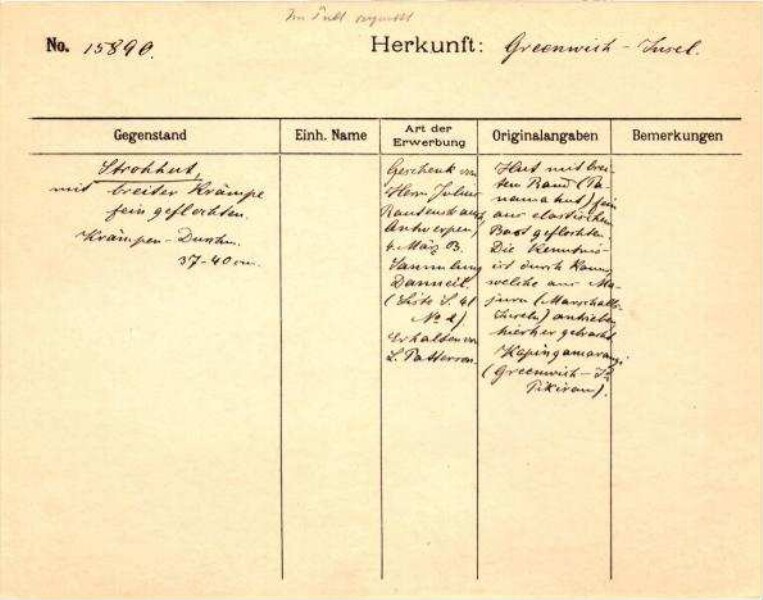 No. 15890. Herkunft: Greenwich-Insel.
Gegenstand
Einh. Name
Art der
Erwerbung
Originalangaben
Bemerkungen
Strohhut,
mit breiter Krämpe
fein geflochten.
Krämpen-Durchm.
37-40 cm.
Geschenk von
Herrn Julius
Rautenstrauch,
Antwerpen,
4. März 
Sammlung
Danneil.
(Liste S. 41
No 2)
Erhalten von
L. Patterson.
Hut mit brei-
tem Rand (Pa-
namahut) fein
aus elastischem
Bast geflochten.
Die Kenntnis
ist durch
welche aus Ma-
juru (Marschall-
Inseln) antrieben
hierher gebracht
Kapingamarangi
(Greenwich-Is
Pikiram).